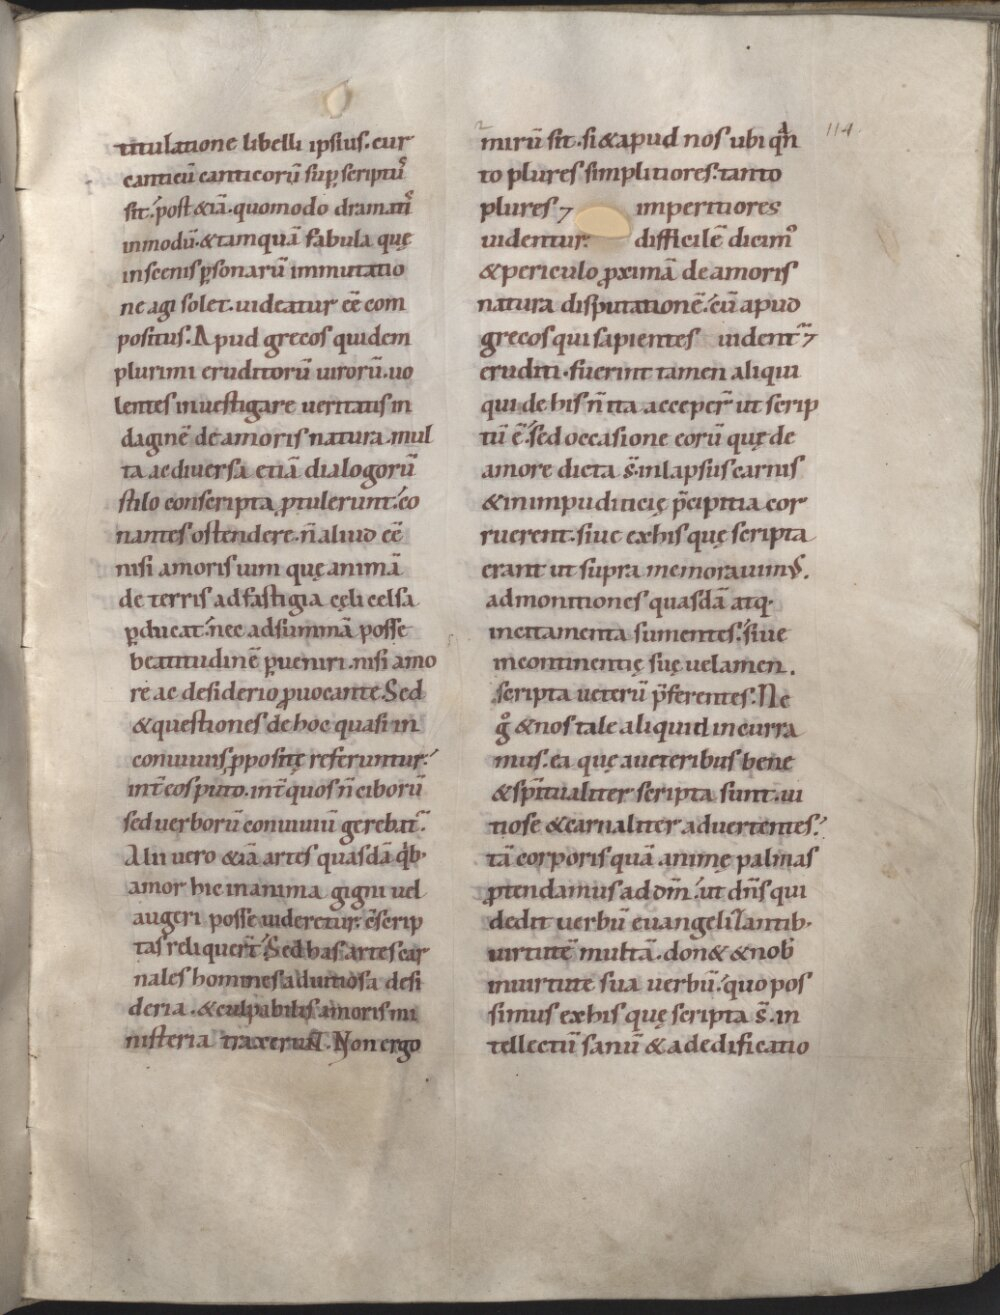 titulatione libelli ipsius. cur
canticũ canticorũ sup̱ scriptũ
sit. post &iã. quomodo dramati
inmodũ. &tamquã fabula quę
inscenis p̱sonarũ immutatio
ne agi solet. uideatur eẽ com
positus. Apud grecos quidem
plurimi eruditorũ uirorũ. uo
lentes inuestigare ueritatis in
daginẽ de amoris natura. mul
ta ac diversa etiã dialogorũ
stilo conscripta ꝓtulerunt. co
nantes ostendere. ñ aliud eẽ
nisi amoris uim quę animã
de terris ad fastigia cęli celsa
p̱ducat. nec ad summã posse
beatitudinẽ p̱ueniri. nisi amo
re ac desiderio ꝓuocante. Sed
& questiones de hoc quasi in
conuiuiis ꝓpositę referuntur.
int̃ eos puto. int̃ quos ñ ciborũ
sed uerborũ conuiuiũ gerebat̃.
Alii vero &iã artes quasdã q̇b·
amor hic in anima gigni uel
augeri posse uideretur. c̃scrip
tas reliquer̃t. Sed has artes car
nales homines ad uitiosa desi
deria. & culpabilis amoris mi
nisteria traxerunt. Non ergo
114.
mirũ sit. si & apud nos ubi q̃n
to plures simplitiores. tanto
plures ⁊ imperitiores
uidentur. difficilẽ dicim᷒
& periculo ꝓximã de amoris
natura disputationẽ. cũ apud
grecos qui sapientes uident̃ ⁊
eruditi. fuerint tamen aliqui
qui de his ñ ita acceper̃ ut scrip
tũ ẽ. sed occasione eorũ quę de
amore dicta s̃. in lapsus carnis
& in impudicicię p̃cipitia cor
ruerent. siue ex his quę scripta
erant ut supra memorauim᷒.
admonitiones quasdã atq·
incitamenta sumentes. siue
incontinentię suę uelamen.
scripta ueterũ p̃ferentes. Ne
gͦ & nos tale aliquid incurra
mus. ea quę a ueteribus bene
& sp̃itualiter scripta sunt. ui
tiose & carnaliter advertentes.
tã corporis quã animę palmas
ꝓtendamus ad dm̃. ut dñs qui
dedit uerbũ euangelizantib·
uirtutẽ multã. don& & nob̃
in uirtute sua uerbũ. quo pos
simus ex his quę scripta s̃. in
tellectũ sanũ & ad edificatio